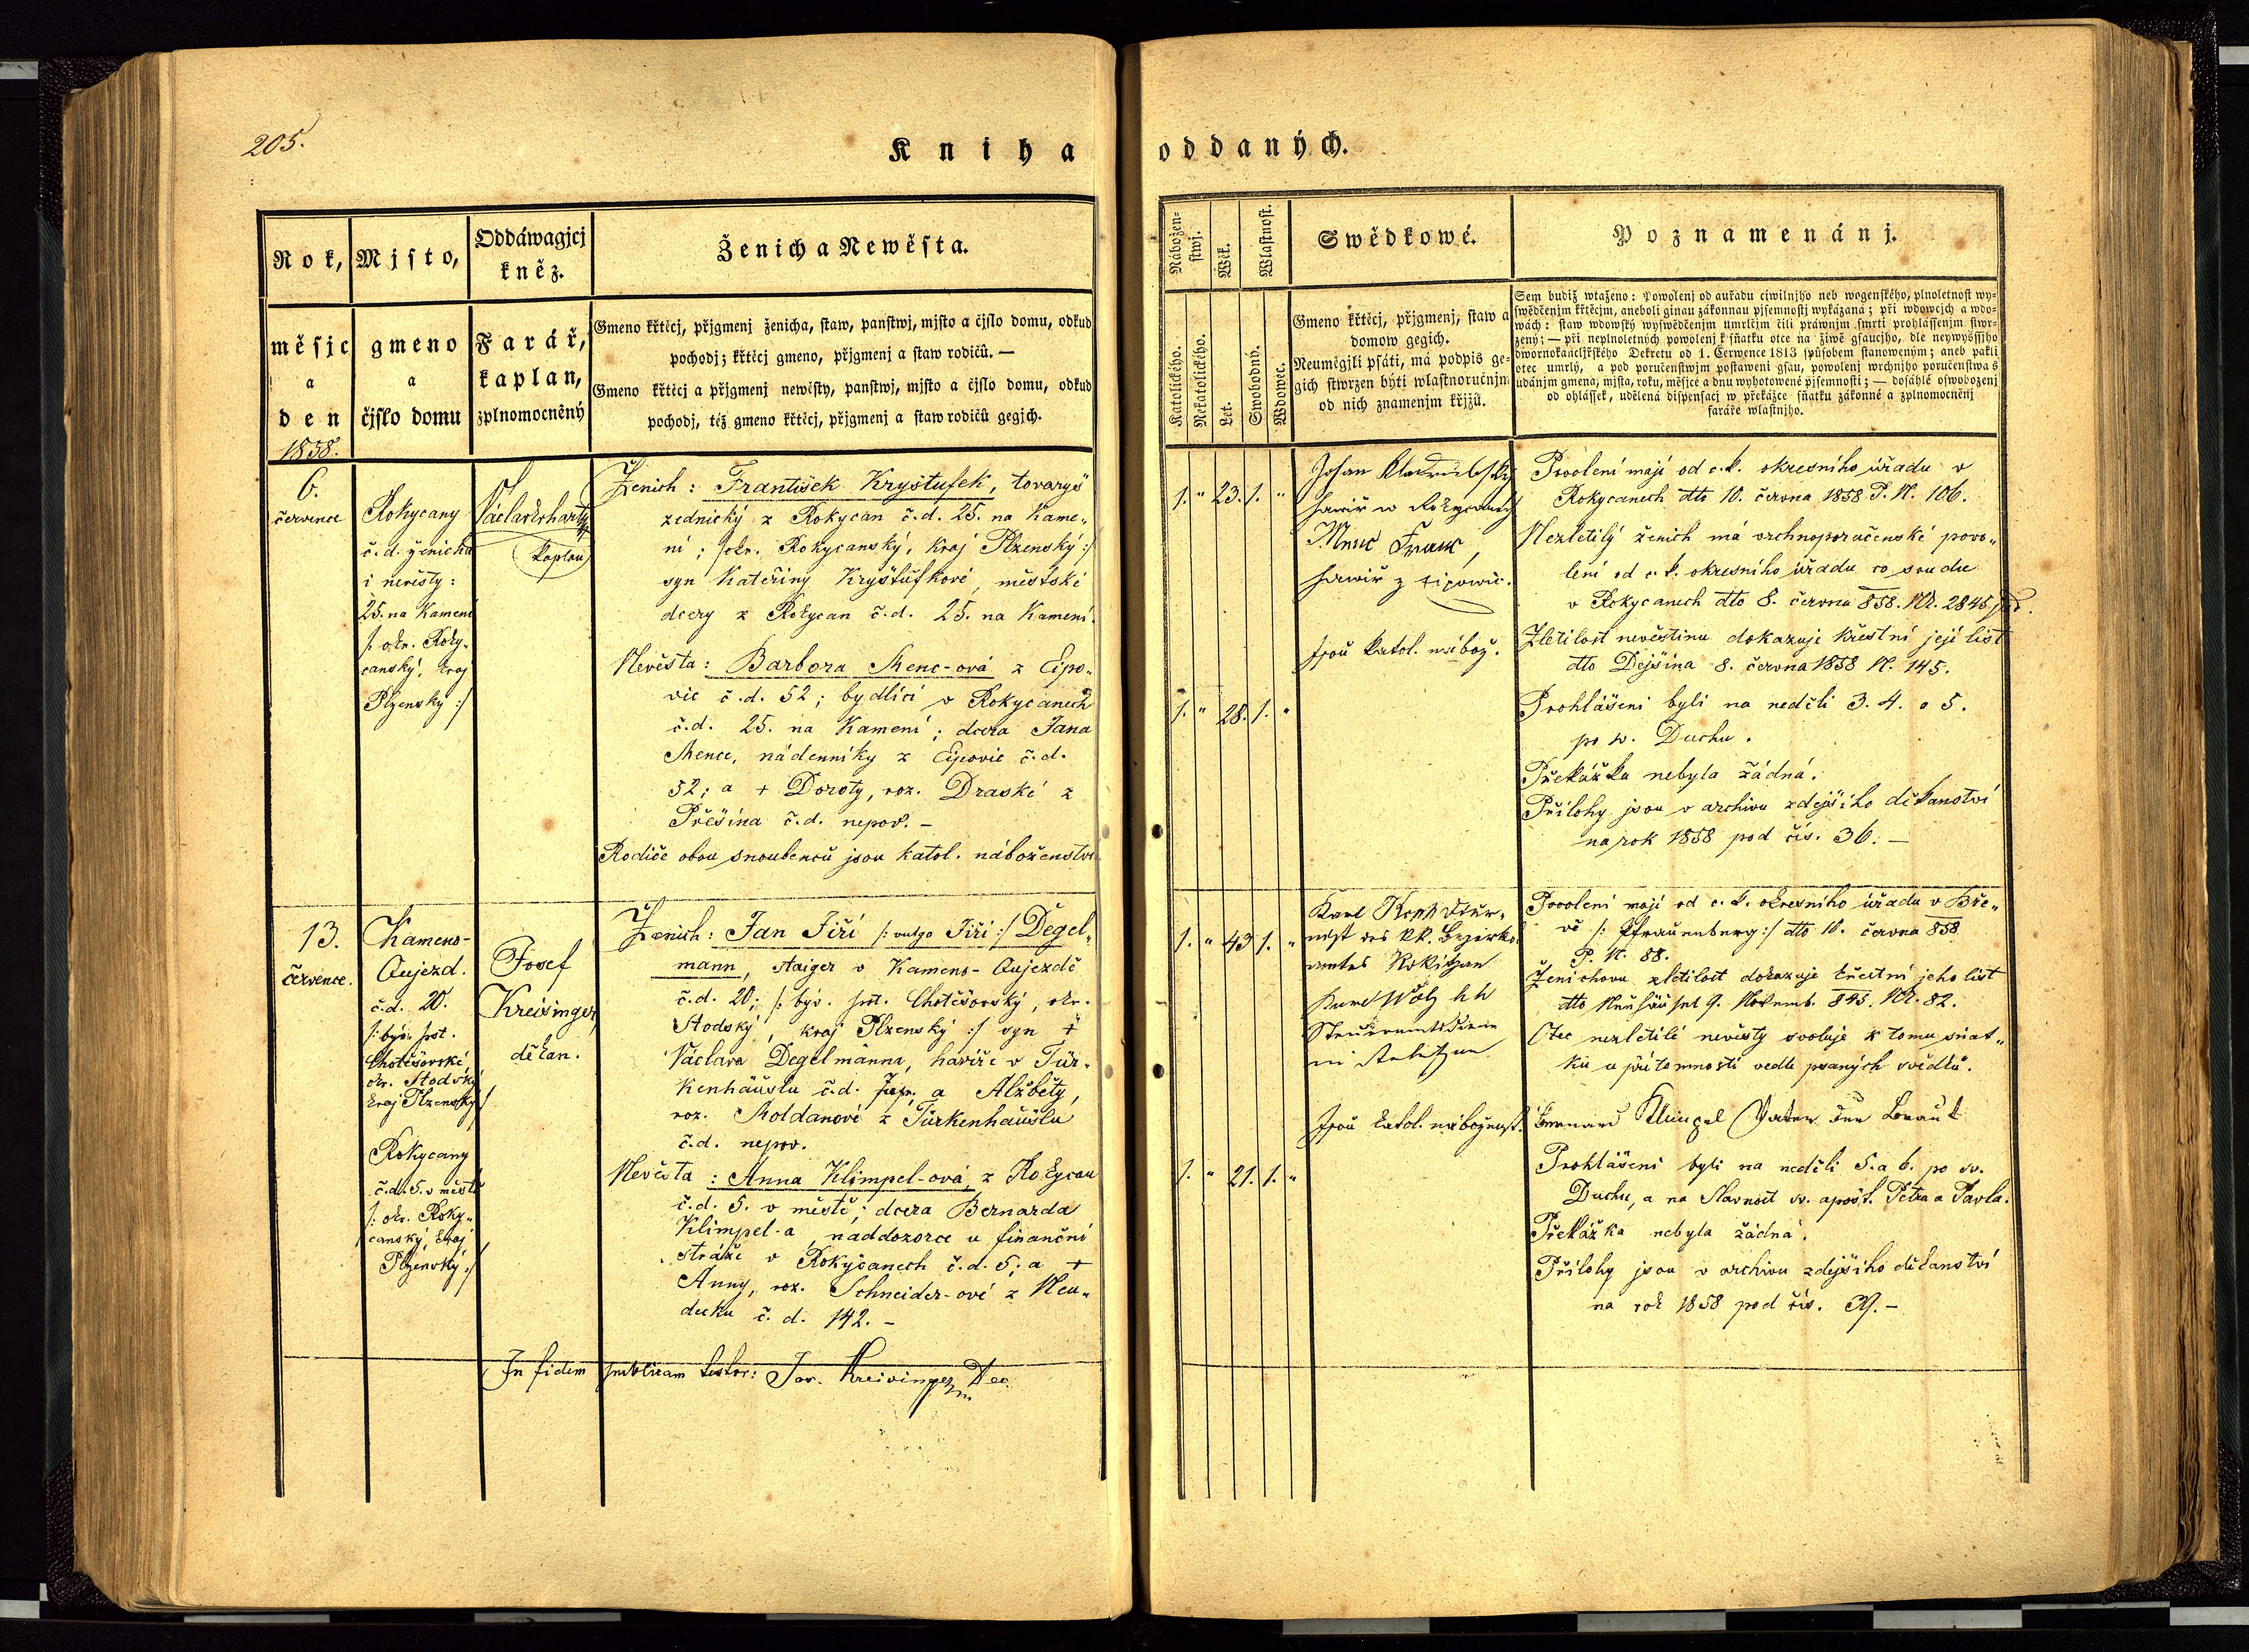 205.
Kniha
oddaných.
Rok,
měsjc
a
den
1858.
Mjsto,
gmeno
a
čjslo domu
Oddáwagjcj
kněz.
Farář,
kaplan,
zplnomocněný
Ženich a Newěsta.
Gmeno křticj, přjgmenj ženicha, staw, panstwj, mjsto a čjslo domu, odkud
pochodj; křticj gmeno, přjgmenj a staw rodičů. —
Gmeno křticj a přjgmenj newěsty, panstwj, mjsto a čjslo domu, odkud
pochodj, též gmeno křticj, přjgmenj a staw rodičů gegjch.
Nábožen-
stwj.
Katolického.
Nekatolického.
Wěk.
Let.
Wlastnost.
Swobodný.
Wdowec.
Swědkowé.
Gmeno křticj, přjgmenj, staw a
domow gegich.
Neuměgjli psáti, má podpis ge-
gich stwrzen býti wlastnoručnjm
od nich znamenjm křjžů.
Poznamenánj.
Sem budiž wtaženo: Powolenj od auřadu ciwilnjho neb wogenského, plnoletnost wy-
swědčenjm křticjm, aneboli ginau zákonnau pjsemnostj wykázaná; při wdowcjch a wdo-
wách: staw wdowský wyswědčenjm umrlčjm čili práwnjm smrti prohlássenjm stwr-
zený; — při neplnoletných powolenj k sňatku otce na žiwě gsaucjho, dle neywyššjho
dwornokancljřského Dekretu od 1. Čerwence 1813 spůsobem stanoweným; aneb pakli
otec umrlý, a pod poručenstwjm postaweni gsau, powolenj wrchnjho poručenstwa s
udánjm gmena, mjsta, roku, měsjce a dnu wyhotowené pjsemnosti; — dosáhlé oswobozenj
od ohlássek, udělená dispensacj w překážce sňatku zákonné a zplnomocněnj
faráře wlastnjho.
6.
července
Rokycany
č.d. ženicha
i nevěsty:
25. na Kamení
/: okr. Roky-
canský, kraj
Plzenský :/
Václav Erhart
kaplan
Ženich: František Kryštufek, tovaryš
zednický z Rokycan č.d. 25. na Kame-
ní; /: okr. Rokycanský, kraj Plzenský :/
syn Kateřiny Kryštůfkové, městské
dcery z Rokycan č.d. 25. na Kamení.
Nevěsta: Barbora Menc-ová z Ejpo-
vic č.d. 52; bydlící v Rokycanech
č.d. 25. na Kamení; dcera Jana
Mence, nádenníky z Ejpovic č.d.
52; a + Doroty, roz. Draské z
Přešína č.d. nepov. —
Rodiče obou snoubenců jsou katol. náboženství
1. " 23. 1. "
1. " 28. 1. "
Johan
hawiř w Rokycanech
Menc Franc,
hawiř z Eipowic.
Jsou katol. nábož.
Povolení mají od c.k. okresního úřadu v
Rokycanech dto 10. června 1858 P. N. 106.
Nezletilý ženich má vrchnoporučenské povo-
lení od c.k. okresního úřadu co soudu
v Rokycanech dto 8. června 858. Nr. 2845
Zletilost nevěstinu dokazuje křestní její list
dto Dejšina 8. června 1858 N. 145.
Prohlášeni byli na neděli 3. 4. a 5.
po sv. Duchu.
Překážka nebyla žádná.
Přílohy jsou v archivu zdejšího děkanství
na rok 1858 pod čís. 36. —
13.
července.
Kameno-
Aujezd.
č.d. 20.
/: býv. pst.
Chotěšovské,
okr. Stodský
kraj Plzenský :/
Rokycany
č.d. 5. v městě
/: okr. Roky-
canský, kraj
Plzenský :/
Josef
Kreisinger,
děkan.
Ženich: Jan Jiří /: vulgo Jiří :/ Degel-
mann, Staiger v Kameno-Aujezdě
č.d. 20; /: býv. pst. Chotěšovský, okr.
Stodský, kraj Plzenský :/ syn +
Václava Degelmanna, havíře v Tür-
kenhäuslu č.d. a Alžběty,
roz. Moldanové z Türkenhäuslu
č.d. nepov.
Nevěsta: Anna Klimpel-ová, z Rokycan
č.d. 5. v městě; dcera Bernarda
Klimpel-a, naddozorce u finanční
stráže v Rokycanech č.d. 5; a +
Anny, roz. Schneider-ové z Neu-
decku č.d. 142. —
In fidem publicam testor: Jos. Kreisinger Dec.
1. " 43 1. "
1. " 21. 1. "
Karl
des kk. Bezirks-
amtes Rokitzan
in Rokitzan
Jsou katol. nábožnst.
Povolení mají od c.k. okresního úřadu v Bře-
ně /: Pfrauenburg :/ dto 10. června 858
P. N. 88.
Ženichovu zletilost dokazuje křestní jeho list
dto Neuhäusel 9. Novemb. 845. Nr. 82.
Otec nezletilé nevěsty svoluje k tomu sňat-
ku u přítomnosti vedle psaných svědků.
Bernard Klimpel Vater der Braut
Prohlášeni byli na neděli 5. a 6. po sv.
Duchu, a na Slavnost sv. apošt. Petra a Pavla.
Překážka nebyla žádná.
Přílohy jsou v archivu zdejšího děkanství
na rok 1858 pod čís. 37. —